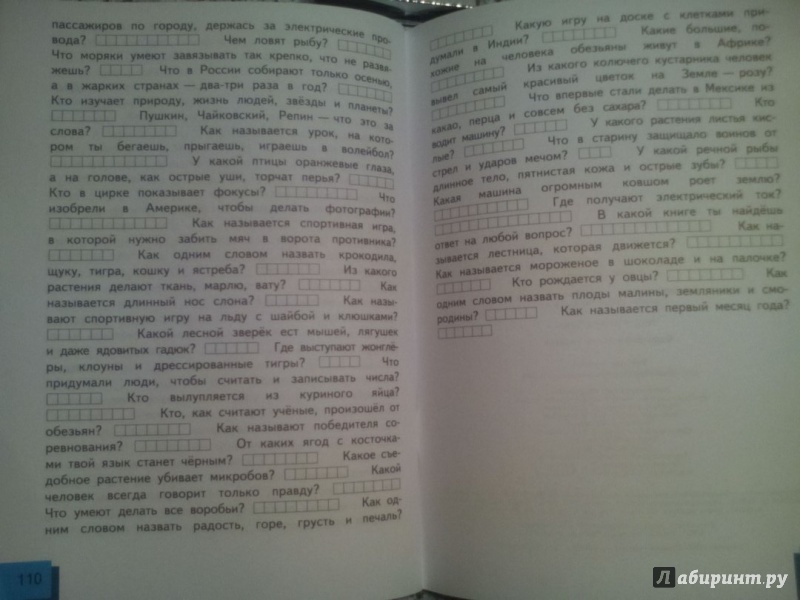 пассажиров по городу, держась за электрические про-
вода? Чем ловят рыбу?
Что моряки умеют завязывать так крепко, что не развя-
жешь? Что в России собирают только осенью,
а в жарких странах — два-три раза в год?
Кто изучает природу, жизнь людей, звёзды и планеты?
Пушкин, Чайковский, Репин — что это за
слова? Как называется урок, на кото-
ром ты бегаешь, прыгаешь, играешь в волейбол?
У какой птицы оранжевые глаза,
а на голове, как острые уши, торчат перья?
Кто в цирке показывает фокусы? Что
изобрели в Америке, чтобы делать фотографии?
Как называется спортивная игра,
в которой нужно забить мяч в ворота противника?
Как одним словом назвать крокодила,
щуку, тигра, кошку и ястреба? Из какого
растения делают ткань, марлю, вату? Как
называется длинный нос слона? Как назы-
вают спортивную игру на льду с шайбой и клюшками?
Какой лесной зверёк ест мышей, лягушек
и даже ядовитых гадюк? Где выступают жонглё-
ры, клоуны и дрессированные тигры? Что
придумали люди, чтобы считать и записывать числа?
Кто вылупляется из куриного яйца?
Кто, как считают учёные, произошёл от
обезьян? Как называют победителя со-
ревнования? От каких ягод с косточка-
ми твой язык станет чёрным? Какое съе-
добное растение убивает микробов? Какой
человек всегда говорит только правду?
Что умеют делать все воробьи? Как од-
ним словом назвать радость, горе, грусть и печаль?
110
Какую игру на доске с клетками при-
думали в Индии? Какие большие, по-
хожие на человека обезьяны живут в Африке?
Из какого колючего кустарника человек
вывел самый красивый цветок на Земле — розу?
Что впервые стали делать в Мексике из
какао, перца и совсем без сахара? Кто
водит машину? У какого растения листья кис-
лые? Что в старину защищало воинов от
стрел и ударов мечом? У какой речной рыбы
длинное тело, пятнистая кожа и острые зубы?
Какая машина огромным ковшом роет землю?
Где получают электрический ток?
В какой книге ты найдёшь
ответ на любой вопрос? Как на-
зывается лестница, которая движется?
Как называется мороженое в шоколаде и на палочке?
Кто рождается у овцы? Как
одним словом назвать плоды малины, земляники и смо-
родины? Как называется первый месяц года?
Лабиринт.ру